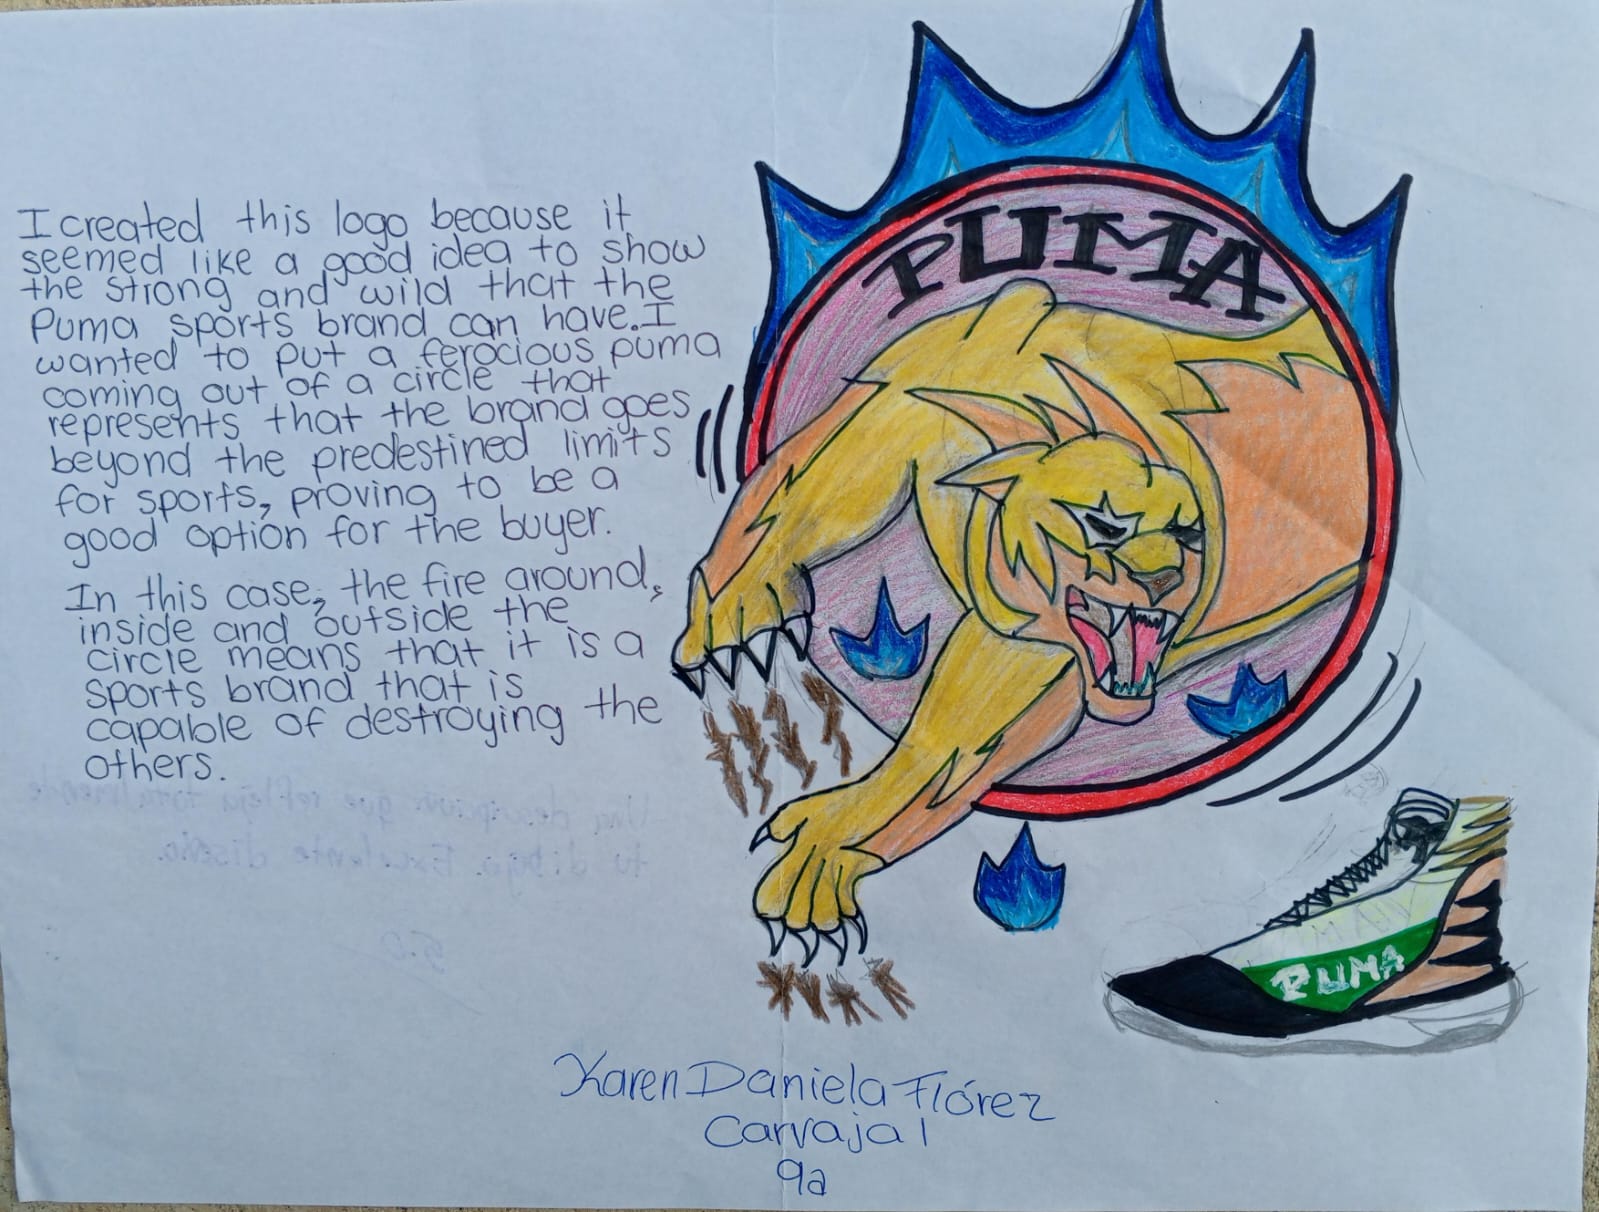 I created this logo because it
seemed like a good idea to show
the strong and wild that the
Puma sports brand can have. I
wanted to put a ferocious puma
coming out of a circle that
represents that the brand goes
beyond the predestined limits
for sports, proving to be a
good option for the buyer.
In this case, the fire around,
inside and outside the
circle means that it is a
sports brand that is
capable of destroying the
others.
Una descripción que refleja totalmente
tu dibujo. Excelente diseño.
5.0
PUMA
PUMA
Karen Daniela Flórez
Carvajal
9a